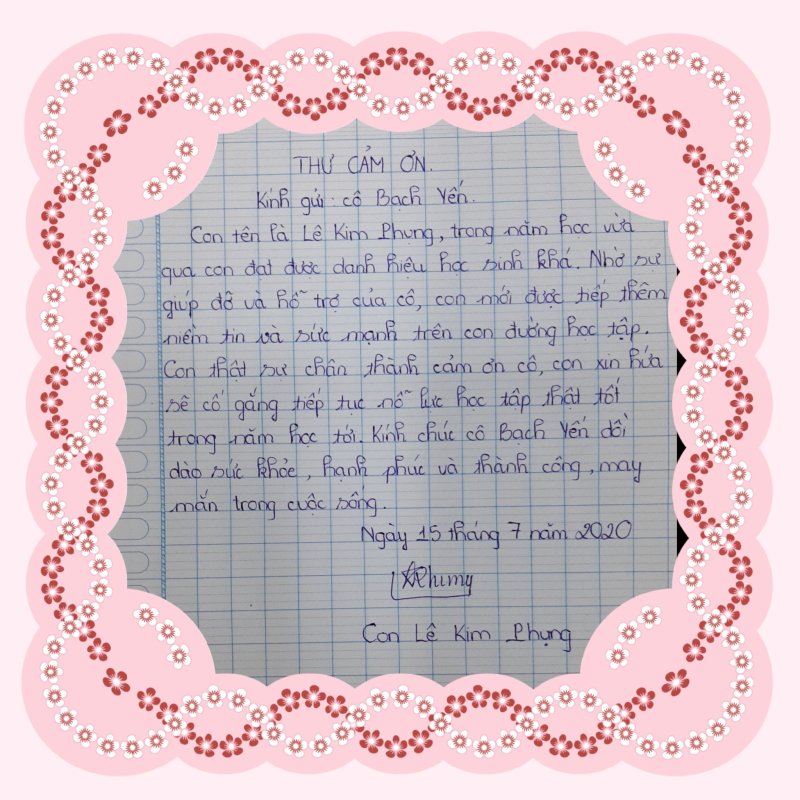 THƯ CẢM ƠN.
Kính gửi: cô Bạch Yến.
Con tên là Lê Kim Phụng, trong năm học vừa
qua con đạt được danh hiệu học sinh khá. Nhờ sự
giúp đỡ và hỗ trợ của cô, con mới được tiếp thêm
niềm tin và sức mạnh trên con đường học tập.
Con thật sự chân thành cảm ơn cô, con xin hứa
sẽ cố gắng tiếp tục nỗ lực học tập thật tốt
trong năm học tới. Kính chúc cô Bạch Yến dồi
dào sức khỏe, hạnh phúc và thành công, may
mắn trong cuộc sống.
Ngày 15 tháng 7 năm 2020
Con Lê Kim Phụng